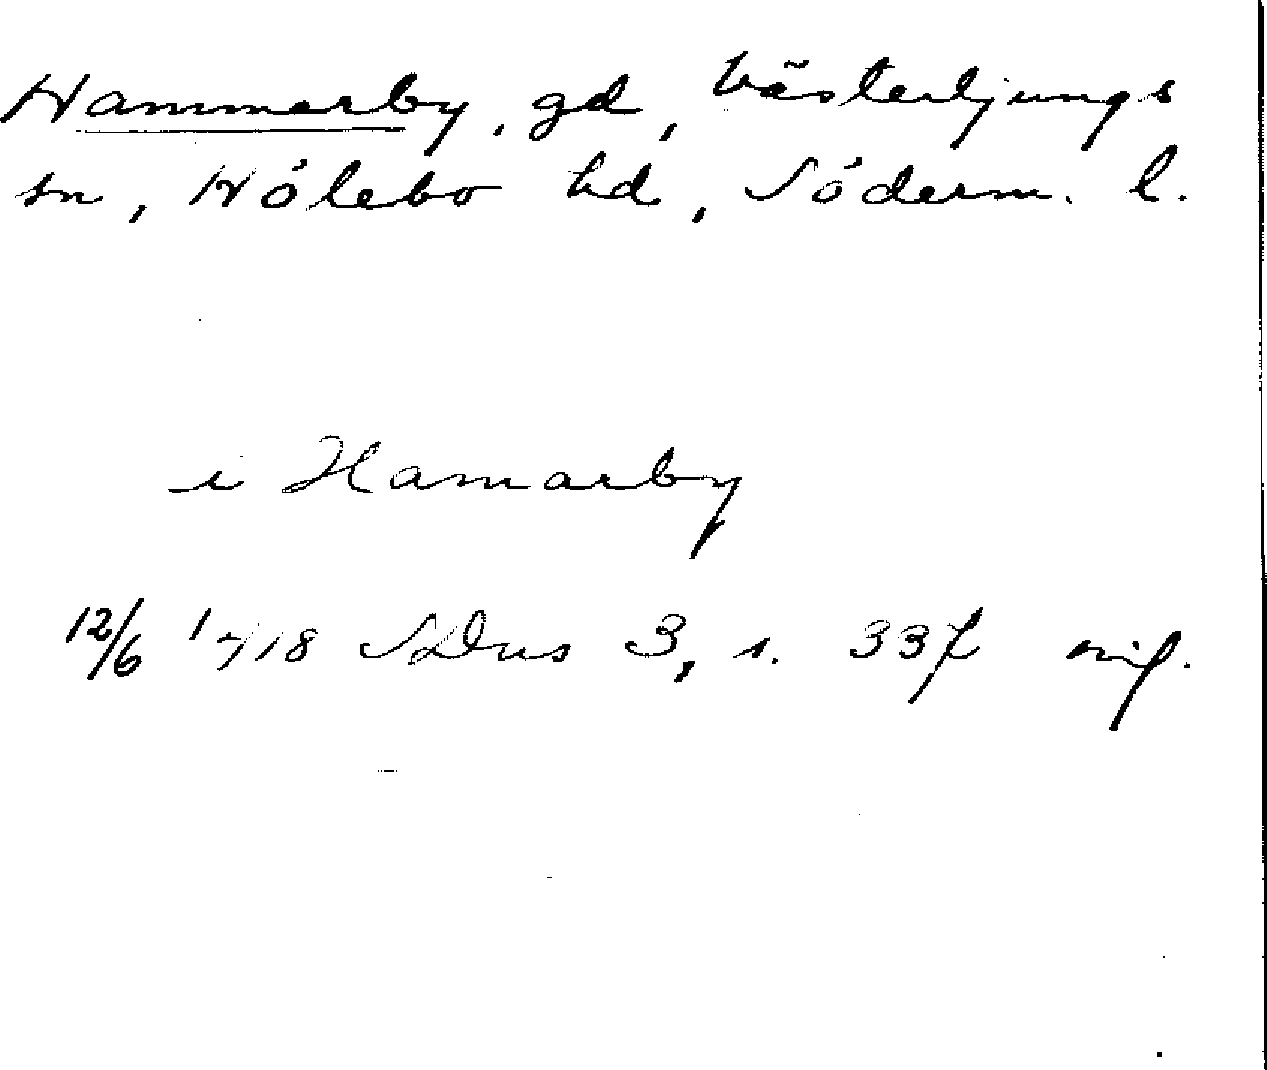 Hammarby, gd, Västerljungs
sn, Hölebo hd, Söderm. l.
i Hamarby
12/6 1418 SDns 3, s. 337 orig.